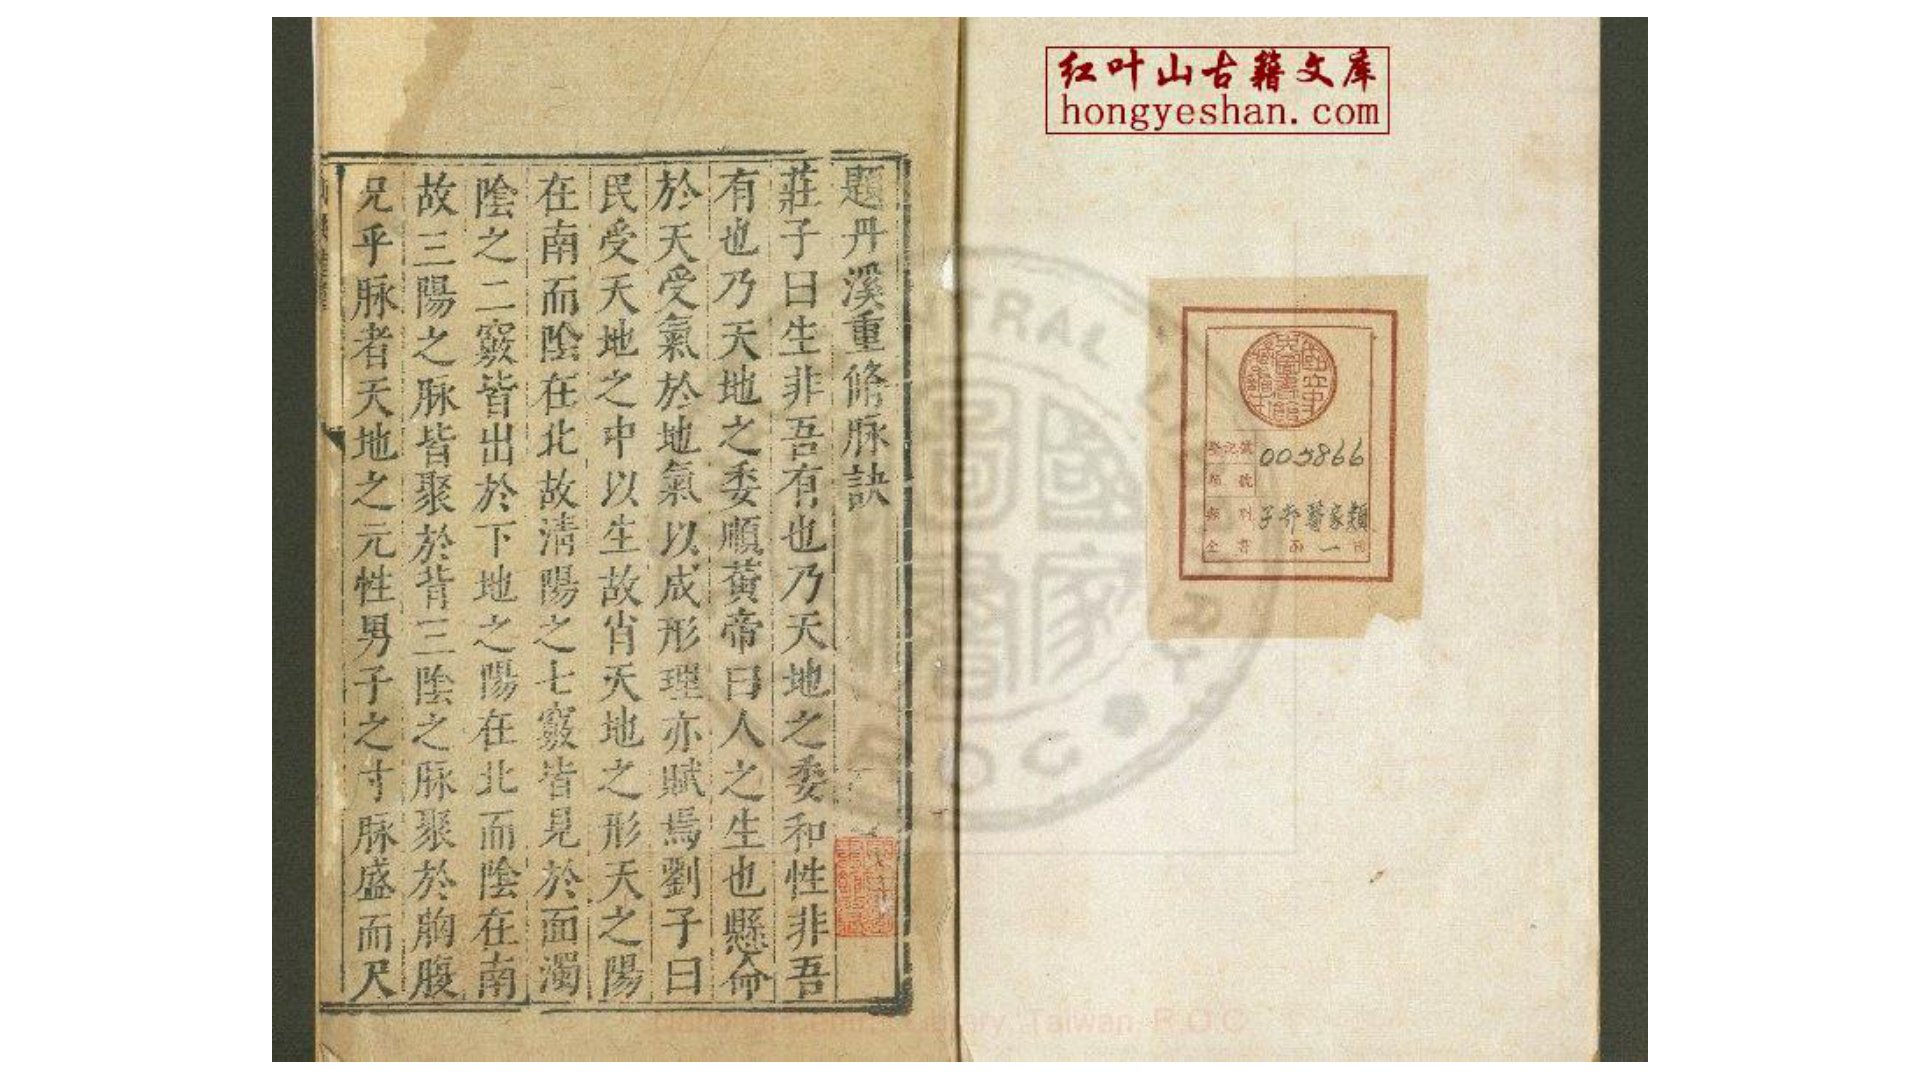 红叶山古籍文库
hongyeshan.com
登記號 005866
號
類別 子部醫家類
全書 函一冊
題丹溪重脩脉訣
莊子曰生非吾有也乃天地之委和性非吾
有也乃天地之委順黃帝曰人之生也懸命
於天受氣於地氣以成形理亦賦焉劉子曰
民受天地之中以生故肖天地之形天之陽
在南而陰在北故清陽之七竅皆見於面濁
陰之二竅皆出於下地之陽在北而陰在南
故三陽之脉皆聚於背三陰之脉聚於胸腹
兄乎脉者天地之元性男子之寸脉盛而尺
CENTRAL LIBRARY
國家圖書
R.O.C
Library, Taiwan R.O.C